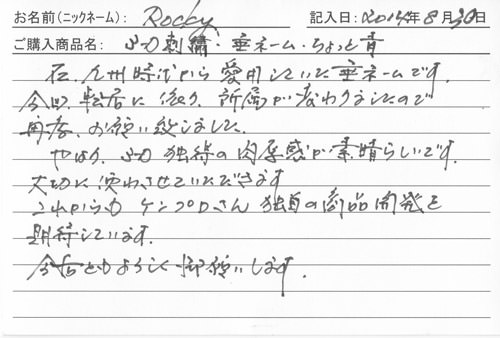 お名前(ニックネーム): Rocky 記入日: 2014年8月30日
ご購入商品名: 3D刺繍・垂ネーム・ちょっと青
在、九州時代から愛用していた垂ネームです。
今回、転居に伴い、所属が変わりましたので
再度、お願い致しました。
やはり、3D独特の肉厚感が素晴らしいです。
大切に使わさせていただきます
これからもケンプロさん独自の商品開発を
期待しています。
今后ともよろしく御願いします。